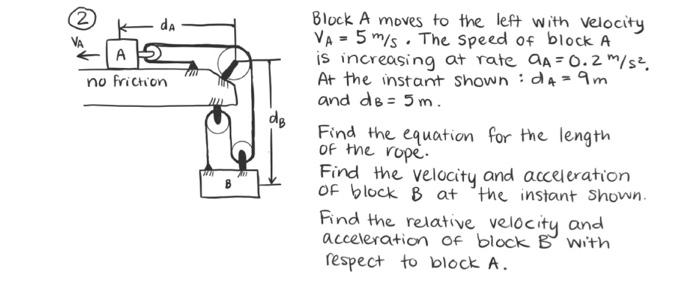 2
dA
VA
A
no friction
dB
B
Block A moves to the left with velocity
VA = 5 m/s. The speed of block A
is increasing at rate aA = 0.2 m/s².
At the instant shown: dA = 9m
and dB = 5m.
Find the equation for the length
of the rope.
Find the velocity and acceleration
of block B at the instant shown.
Find the relative velocity and
acceleration of block B with
respect to block A.